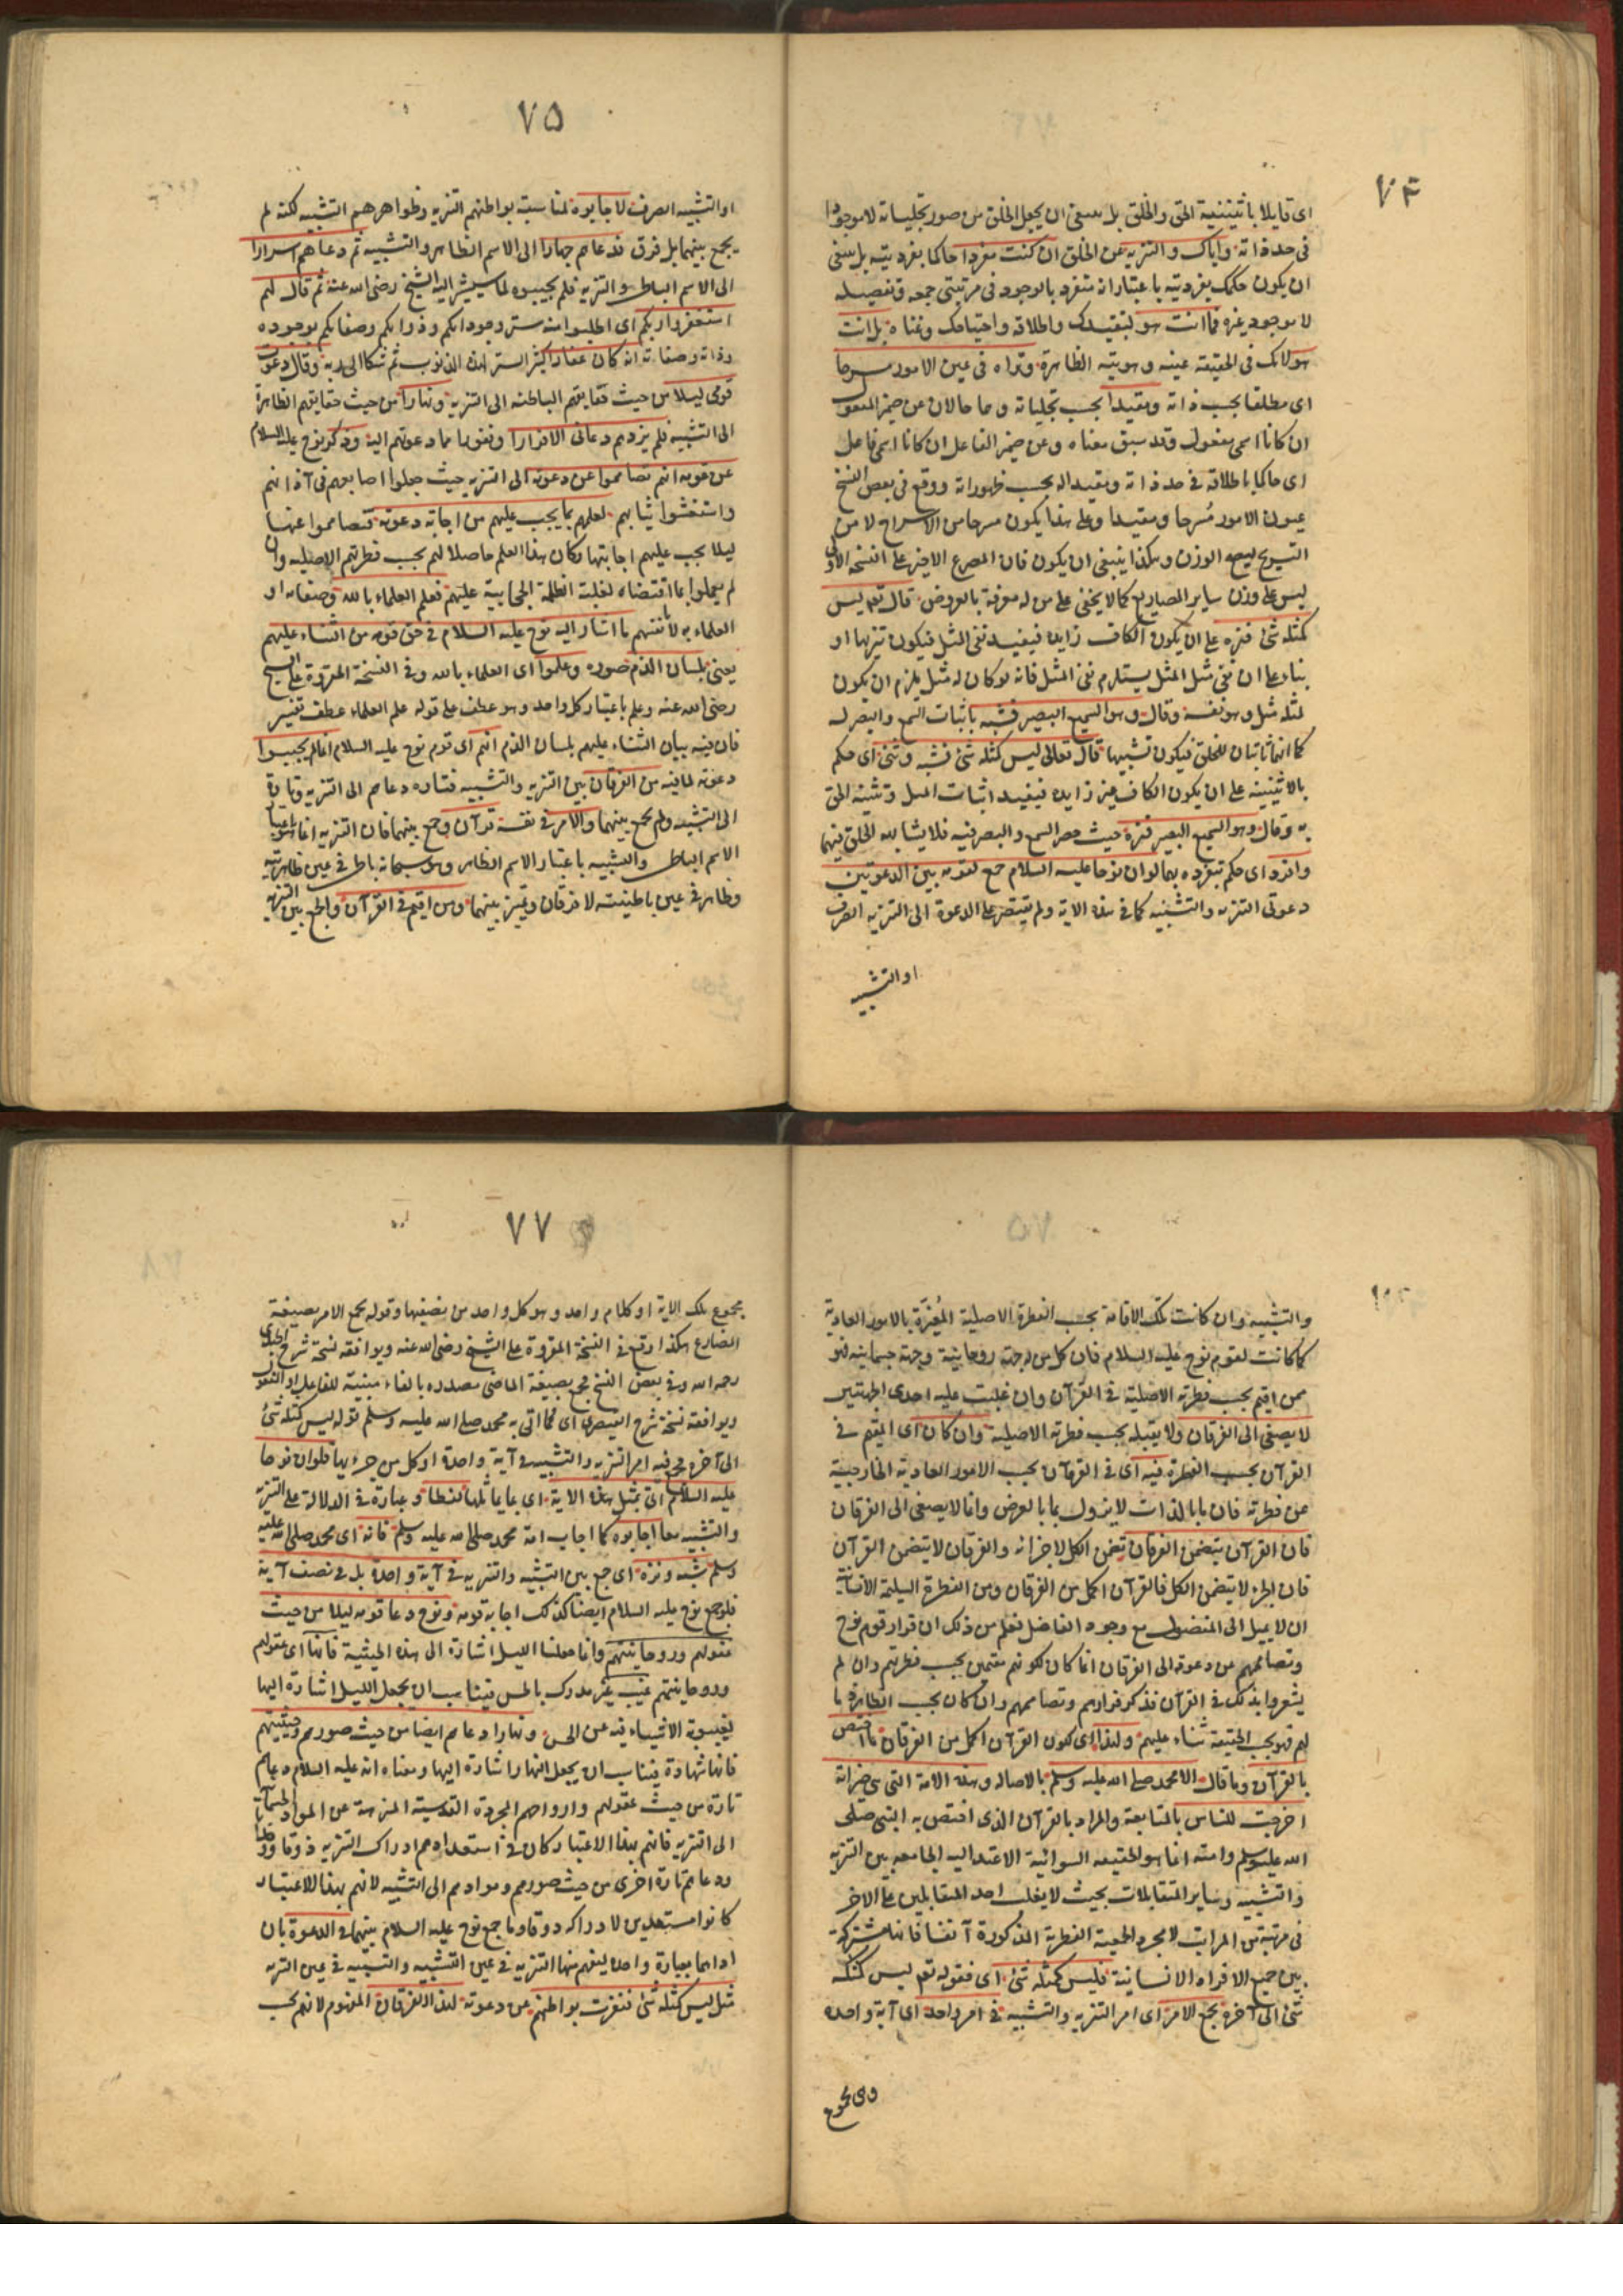 ٧٤
اى قايلا باثنينية الحق والخلق بل ينبغى ان يجعل الخلق من صور تجلياته لا موجودا
فى حد ذاته واياك والتنزيه عن الخلق ان كنت مفردا حاكما بفرديته بل ينبغى
ان يكون حكمك بفرديته باعتبار انه متفرد بالوجود فى مرتبتى جمعه وتفصيله
لا موجود غيره فما انت هو لتقيدك واطلاقه واحتياجك وغناه بل انت
هو لانك فى الحقيقة عينه وهويته الظاهرة وتراه فى عين الامور مسرحا
اى مطلقا بحسب ذاته ومقيدا بحسب تجلياته وهما حالان عن ضمير المفعول
ان كانا اسمى مفعول وقد سبق معناه وعن ضمير الفاعل ان كانا اسمى فاعل
اى حاكما باطلاقه فى حد ذاته ومقيدا له بحسب ظهوراته ووقع فى بعض النسخ
عيون الامور مسرحا ومقيدا وعلى هذا يكون مسرحا من الاسراح لا من
التسريح ليصح الوزن وهكذا ينبغى ان يكون فان المصرع الاخير على النسخة الاولى
ليس على وزن ساير المصاريع كما لا يخفى على من له معرفة بالعروض قال تعم ليس
كمثله شئ فنزه على ان يكون الكاف زايدة فيفيد نفى المثل فيكون تنزيها او
بناء على ان نفى مثل المثل يستلزم نفى المثل فانه لو كان له مثل يلزم ان يكون
لمثله مثل وهو نفسه وقال وهو السميع البصير فشبه باثبات السمع والبصر له
كما انهما ثابتان للخلق فيكون تشبيها قال تعالى ليس كمثله شئ فشبه وثنى اى حكم
بالاثنينية على ان يكون الكاف غير زايدة فيفيد اثبات المثل وتثنية الحق
به وقال وهو السميع البصير فنزه حيث حصر السمع والبصر فيه فلا يشابه الخلق فيهما
وافرد اى حكم بتفرده بهما لو ان نوحا عليه السلام جمع لقومه بين الدعوتين
دعوتى التنزيه والتشبيه كما فى هذه الاية ولم يقتصر على الدعوة الى التنزيه الصرف
او التشبيه
٧٥
او التشبيه الصرف لاجابوه لمناسبة بواطنهم التنزيه وظواهرهم التشبيه لكنه لم
يجمع بينهما بل فرق فدعاهم جهارا الى الاسم الظاهر والتشبيه ثم دعاهم اسرارا
الى الاسم الباطن والتنزيه فلم يجيبوه لما سيشير اليه الشيخ رضى الله عنه ثم قال لهم
استغفروا ربكم اى اطلبوا منه ستر وجوداتكم وذواتكم وصفاتكم بوجوده
وذاته وصفاته انه كان غفارا كثير الستر لهذه الذنوب ثم شكا الى ربه وقال دعوت
قومى ليلا من حيث حقايقهم الباطنه الى التنزيه ونهارا من حيث حقايقهم الظاهرة
الى التشبيه فلم يزدهم دعائى الا فرارا ونفورا مما دعوتهم اليه وذكر نوح عليه السلام
عن قومه انهم تصامموا عن دعوته الى التنزيه حيث جعلوا اصابعهم فى آذانهم
واستغشوا ثيابهم لعلمهم بما يجب عليهم من اجابة دعوته فتصامموا عنها
ليلا يجب عليهم اجابتها وكان هذا العلم حاصلا لهم بحسب فطرتهم الاصليه وان
لم يعملوا بما اقتضاه لغلبة الظلمة الحجابية عليهم فعلم العلماء بالله وصفاته او
العلماء به لا بانفسهم ما اشار اليه نوح عليه السلام فى حق قومه من الثناء عليهم
يعنى بلسان الذم صورة وعلموا اى العلماء بالله وفى النسخة المقروة على الشيخ
رضى الله عنه وعلم باعتبار كل واحد وهو عطف على قوله علم العلماء عطف تفسير
فان فيه بيان الثناء عليهم بلسان الذم انهم اى قوم نوح عليه السلام انما لم يجيبوا
دعوته لما فيه من الفرقان بين التنزيه والتشبيه فتارة دعاهم الى التنزيه وتارة
الى التشبيه ولم يجمع بينهما والامر فى نفسه قرآن وجمع بينهما فان التنزيه انما هو باعتبار
الاسم الباطن والتشبيه باعتبار الاسم الظاهر وهو سبحانه باطن فى عين ظاهريته
وظاهر فى عين باطنيته لا فرقان وتميز بينهما ومن اقيم فى القرآن والجمع بين التنزيه
والتشبيه وان كانت تلك الاقامة بحسب الفطرة الاصلية المغيرة بالامور العادية
كما كانت لقوم نوح عليه السلام فان كل من له جهة روحانية وجهة جسمانية فهو
ممن اقيم بحسب فطرته الاصلية فى القرآن وان غلبت عليه احدى الجهتين
لا يصغى الى الفرقان ولا يقبله بحسب فطرته الاصلية وان كان اى المقيم فى
القرآن بحسب الفطرة فيه اى فى القرقان بحسب الامور العادية الخارجية
عن فطرته فان ما بالذات لا يزول بما بالعرض وانما لا يصغى الى الفرقان
فان القرآن يتضمن الفرقان تضمن الكل لاجزائه والفرقان لا يتضمن القرآن
فان الجزء لا يتضمن الكل فالقرآن اكمل من الفرقان ومن الفطرة السليمة الانسانية
ان لا يميل الى المفضول مع وجود الفاضل فعلم من ذلك ان فرار قوم نوح
وتصاممهم عن دعوته الى الفرقان انما كان لكونهم مقيمين بحسب فطرتهم وان لم
يشعروا بذلك فى القرآن فذكر فرارهم وتصاممهم وان كان بحسب الظاهر ذما
لهم فهو بحسب الحقيقة ثناء عليهم ولهذا اى لكون القرآن اكمل من الفرقان ما اختص
بالقرآن وما قال الا محمد صلى الله عليه وسلم بالاصالة وهذه الامة التى هى خير امة
اخرجت للناس بالمتابعة والمراد بالقرآن الذى اختص به النبى صلى
الله عليه وسلم وامته انما هو الحقيقة السوائية الاعتدالية الجامعة بين التنزيه
والتشبيه وساير المتقابلات بحيث لا يغلب احد المتقابلين على الاخر
فى مرتبة من المراتب لا مجرد الجمعية الفطرية المذكورة آنفا فانها مشتركة
بين جميع الافراد الانسانية فليس كمثله شئ اى فقوله تعم ليس كمثله
شئ الى آخره يجمع الامر اى امر التنزيه والتشبيه فى امر واحد اى آية واحدة
وهى مجموع
٧٧
مجموع تلك الاية او كلام واحد وهو كل واحد من نصفيها وقوله يجمع الامر بصيغة
المضارع هكذا وقع فى النسخة المقروة على الشيخ رضى الله عنه ويوافقه نسخة شرح الجندى
رحمه الله وفى بعض النسخ فجمع بصيغة الماضى مصدره بالفاء مبنية للفاعل او المفعول
ويوافقه نسخة شرح القيصرى اى فما اتى به محمد صلى الله عليه وسلم قوله ليس كمثله شئ
الى آخره فجمع فيه امر التنزيه والتشبيه فى آية واحدة او كل من جزءيها فلو ان نوحا
عليه السلام اتى بمثل هذه الاية اى بما يماثلها لفظا وعبارة فى الدلالة على التنزيه
والتشبيه معا اجابوه كما اجاب امة محمد صلى الله عليه وسلم فانه اى محمد صلى الله عليه
وسلم شبه ونزه اى جمع بين التشبيه والتنزيه فى آية واحدة بل فى نصف آية
فلو جمع نوح عليه السلام ايضا كذلك اجابه قومه ونوح دعا قومه ليلا من حيث
عقولهم وروحانيتهم وانما جعلنا الليل اشارة الى هذه الحيثية فانها اى عقولهم
وروحانيتهم غيب غير مدرك بالحس فيناسب ان يجعل الليل اشارة اليها
لغيبوبة الاشياء فيه عن الحس ونهارا دعاهم ايضا من حيث صورهم وحسيتهم
فانها شهادة فيناسب ان يجعل النهار اشارة اليها ومعناه انه عليه السلام دعاهم
تارة من حيث عقولهم وارواحهم المجردة القدسية المنزهة عن المواد الجسمانية
الى التنزيه فانهم بهذا الاعتبار كان فى استعدادهم ادراك التنزيه ذوقا
ودعاهم تارة اخرى من حيث صورهم وموادهم الى التشبيه لانهم بهذا الاعتبار
كانوا مستعدين لادراكه ذوقا وما جمع نوح عليه السلام بينهما فى الدعوة بان
اداهما بعبارة واحدة يفهم منها التنزيه فى عين التشبيه والتشبيه فى عين التنزيه
مثل ليس كمثله شئ فنفرت بواطنهم عن دعوته لهذا الفرقان المفهوم لانهم بحسب